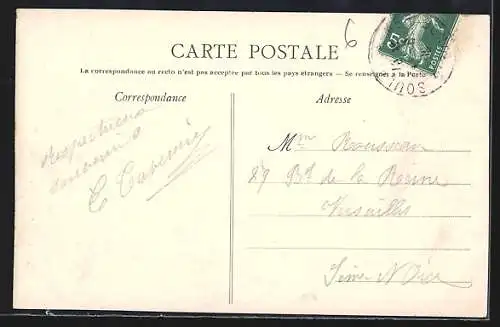 6
CARTE POSTALE
La correspondance au recto n'est pas acceptée par tous les pays étrangers — Se renseigner à la Poste
Correspondance
Adresse
Respectueux
souvenir
Mme Rousseau
89 Bd de la Reine
Versailles
Seine & Oise
5
POSTES